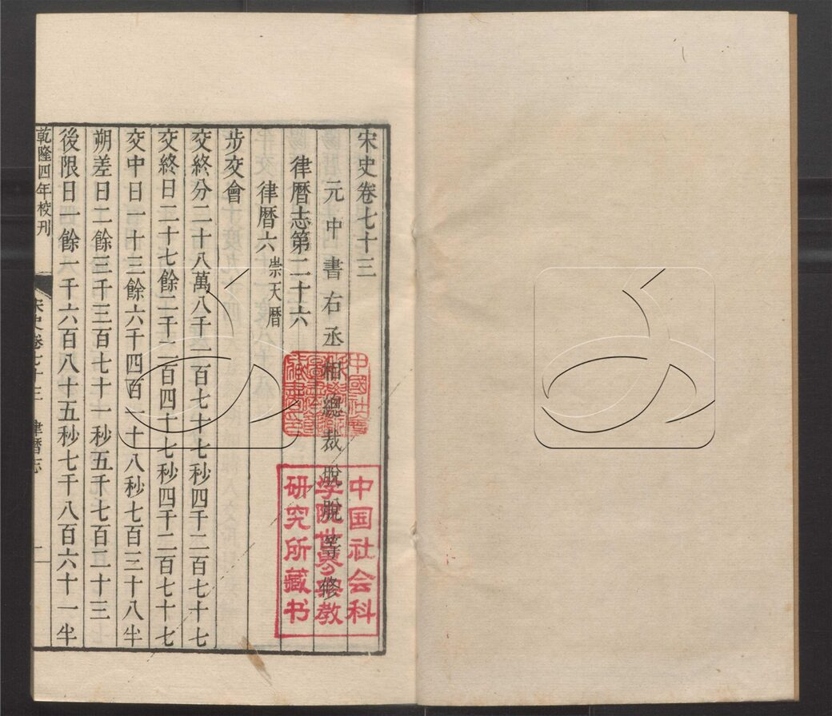 宋史卷七十三
元中書右丞相總裁脫脫等修
律曆志第二十六
律曆六崇天曆
步交會
交終分二十八萬八千一百七十七秒四千二百七十七
交終日二十七餘二千二百四十七秒四千二百七十七
交中日一十三餘六千四百一十八秒七百三十八半
朔差日二餘三千三百七十一秒五千七百二十三
後限日一餘一千六百八十五秒七千八百六十一半
乾隆四年校刊
宋史卷七十三 律曆志 一
中国社会科
学院世界宗教
研究所藏书